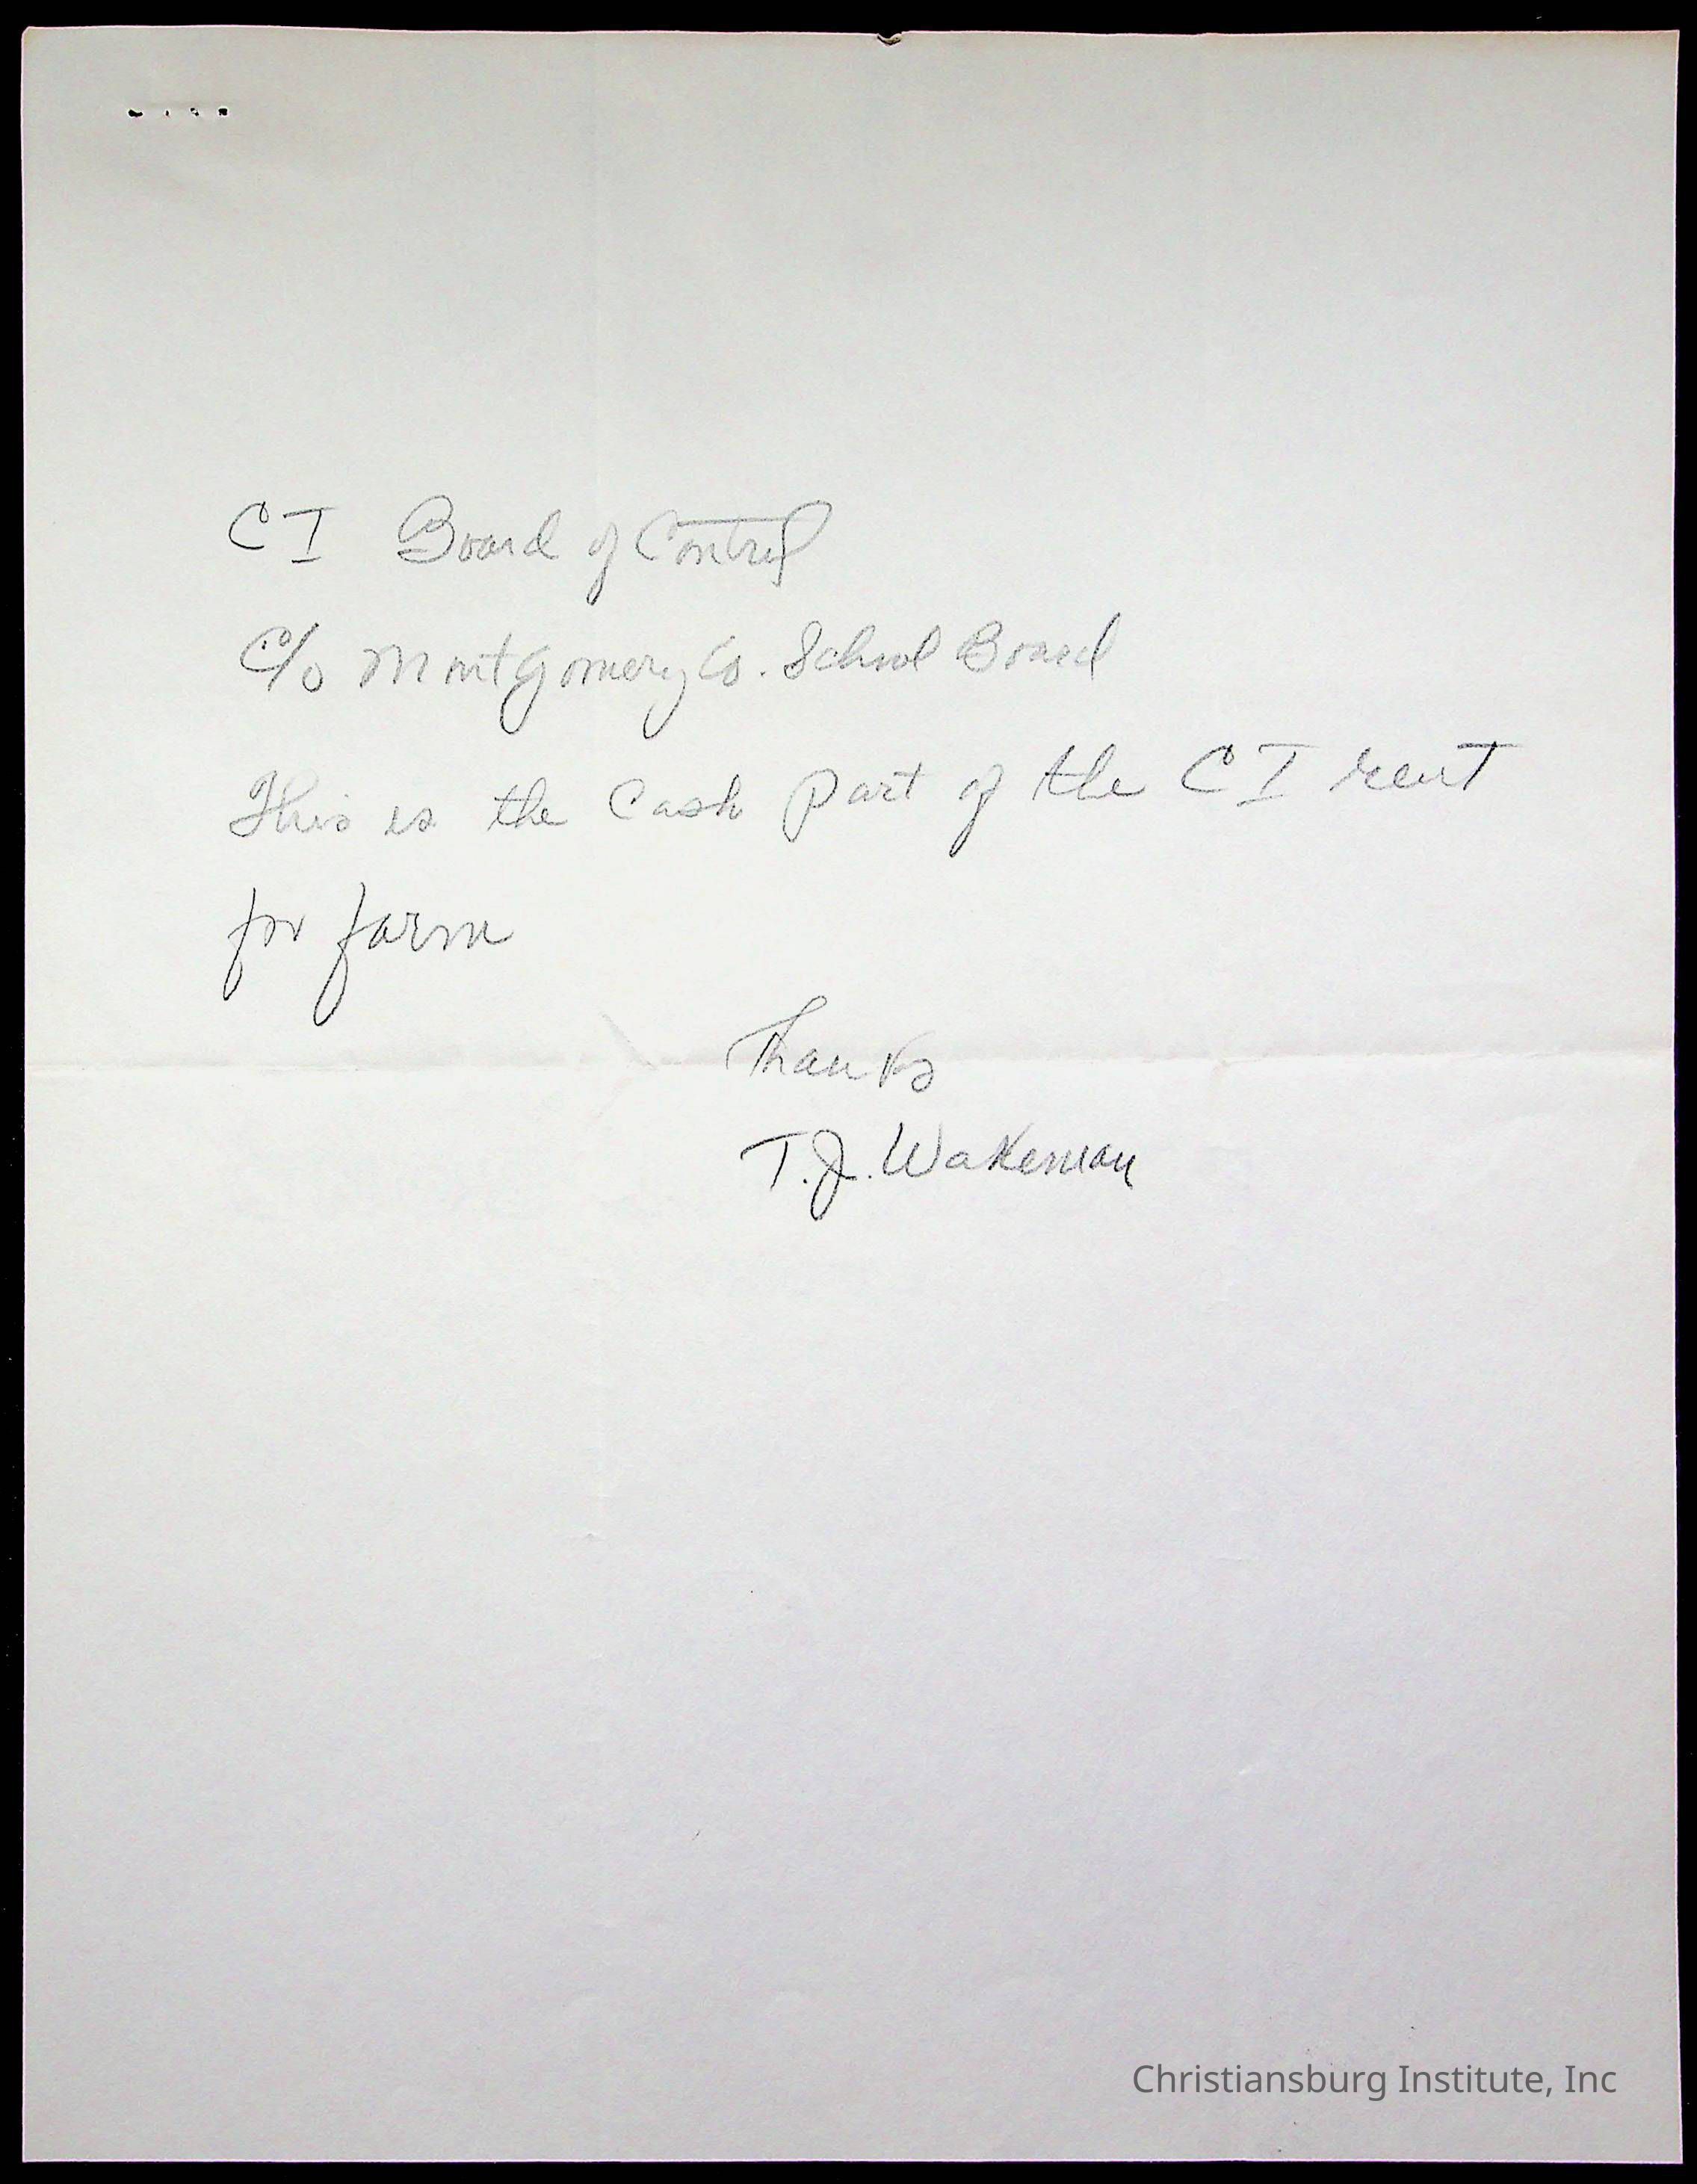 CI Board of Control
C/o Montgomery Co. School Board
This is the Cash Part of the CI rent
for farm
Thanks
T.J. Wakeman
Christiansburg Institute, Inc